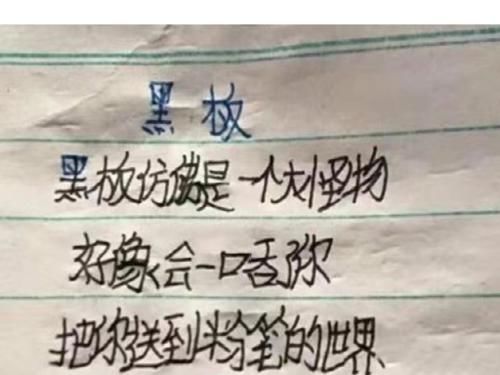 黑板
黑板仿佛是一个大怪物
好像会一口吞你
把你送到粉笔的世界